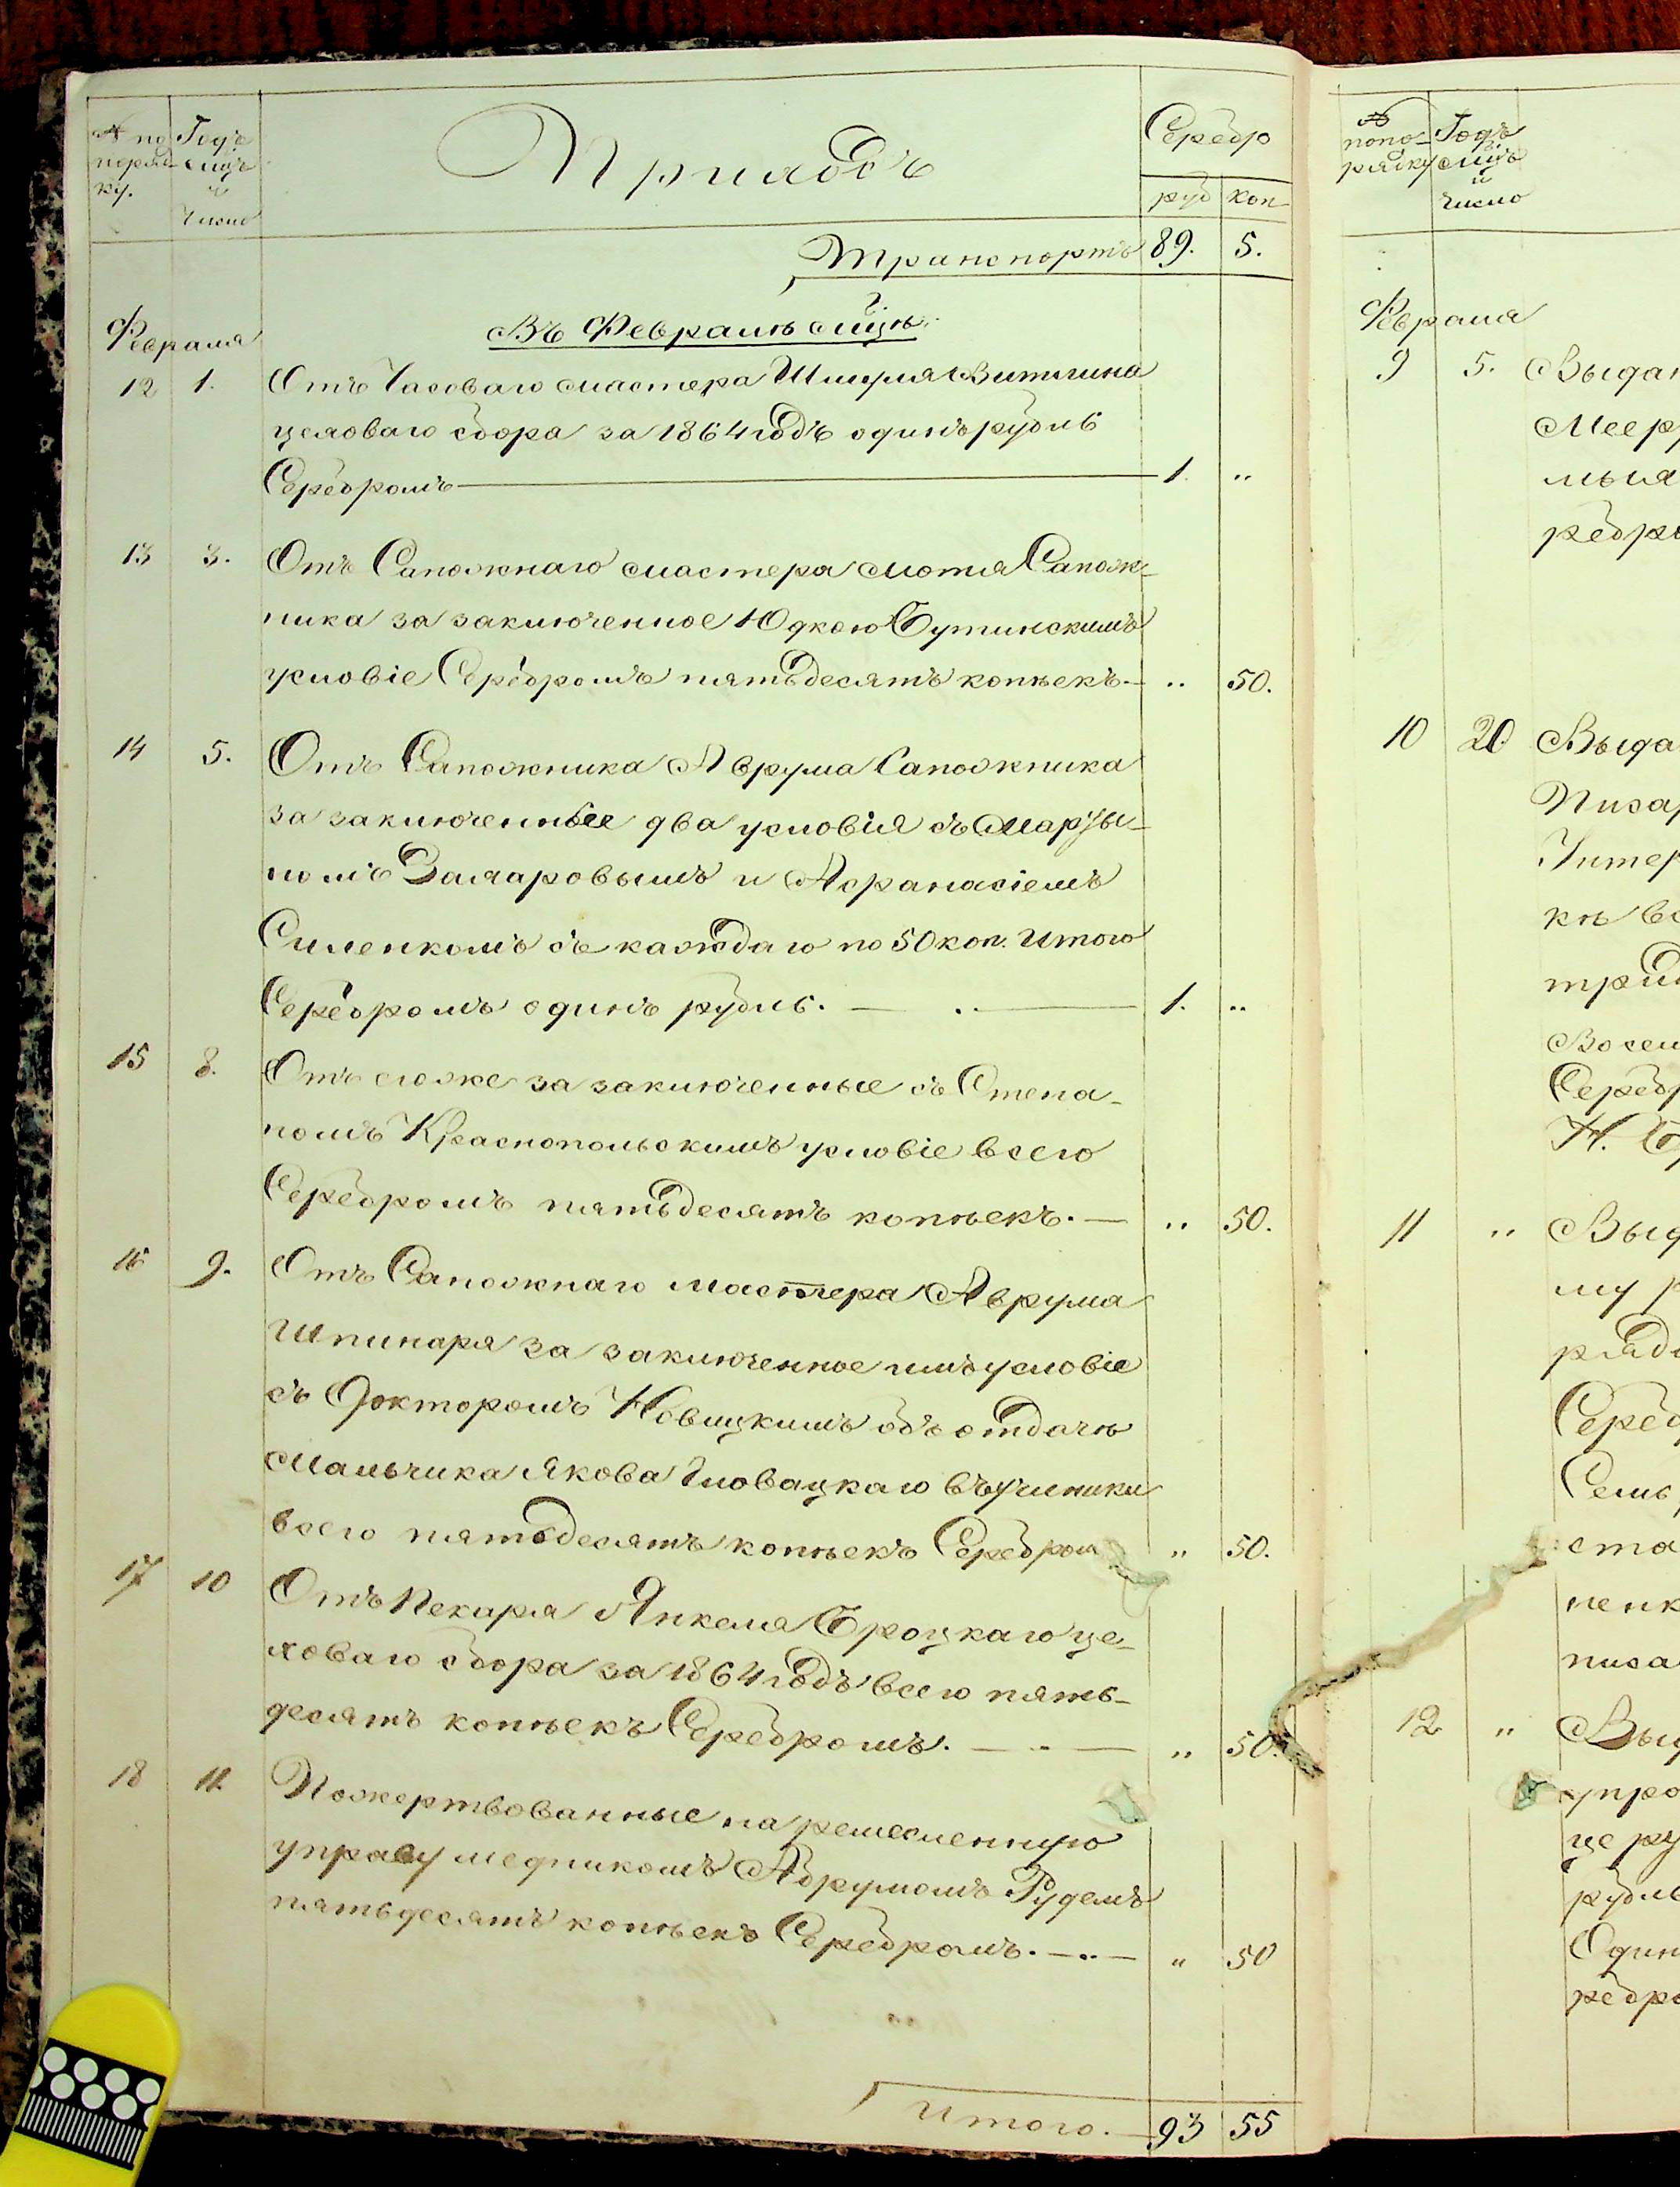 № по поряд-ку.
Годъ мцъ и число
Приходъ
Серебр
руб коп
Транспортъ 89. 5.
Февраля
Въ Февралѣ мцѣ.
12 1. Отъ Часоваго мастера Шмуля
цеховаго сбора за 1864 годъ одинъ рубль
Серебромъ 1. „
13 3. Отъ Сапожнаго мастера Мотя Сапож-
ника за заключенное Юдкою Бутинскимъ
условіе Серебромъ пятьдесятъ копѣекъ. „ 50.
14 5. Отъ Сапожника Аврума Сапожника
за заключенные два условія съ Марты-
номъ и Афанасіемъ
Силенкомъ съ каждаго по 50 коп. Итого
Серебромъ одинъ рубль. 1. „
15 8. Отъ егоже за заключенные съ Степа-
номъ Краснопольскимъ условіе всего
Серебромъ пятьдесятъ копѣекъ. „ 50.
16 9. Отъ Сапожнаго мастера Аврума
Шпинаря за заключенное имъ условіе
съ Докторомъ Новицкимъ объ отдачѣ
мальчика Якова Гловацкаго въ ученики
всего пятьдесятъ копѣекъ Серебром „ 50.
17 10 Отъ Пекаря Янкеля Броцкаго це-
ховаго сбора за 1864 годъ всего пять-
десятъ копѣекъ Серебромъ. „ 50.
18 11. Пожертвованные на ремесленную
управу медникомъ Абрумомъ Рудемъ
пятьдесятъ копѣекъ Серебромъ. „ 50
Итого. 93 55
№ попо-рядку
Годъ мцъ и число
Февраля
9 5. Выдан
Меер
мыя
ребро
10 20 Выда
Писар
Унтер
кѣ вс
трид
Восем
Серебр
Н. Б
11 „ Выд
му р
ряд
Сереб
Семь
ста
пенк
писа
12 „ Выд
упро
це ру
рубле
Один
ребро